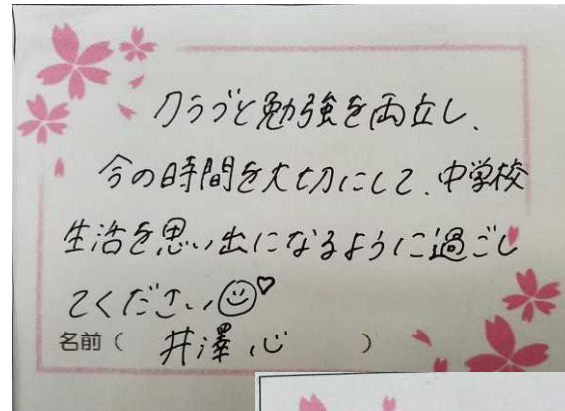 クラブと勉強を両立し、
今の時間を大切にして、中学校
生活を思い出になるように過ごし
てください☺♡
名前（ 井澤 心 ）